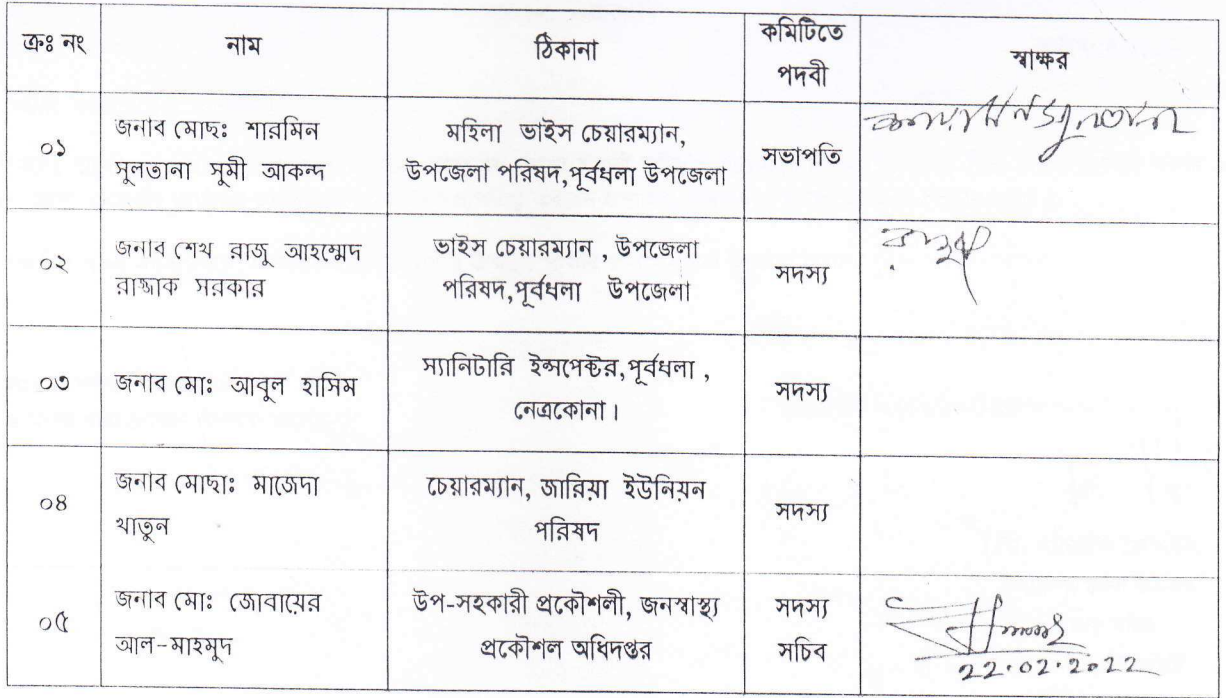 ক্রঃ নং নাম ঠিকানা কমিটিতে পদবী স্বাক্ষর
০১ জনাব মোছঃ শারমিন সুলতানা সুমী আকন্দ মহিলা ভাইস চেয়ারম্যান, উপজেলা পরিষদ,পূর্বধলা উপজেলা সভাপতি
০২ জনাব শেখ রাজু আহম্মেদ রাজ্জাক সরকার ভাইস চেয়ারম্যান , উপজেলা পরিষদ,পূর্বধলা উপজেলা সদস্য
০৩ জনাব মোঃ আবুল হাসিম স্যানিটারি ইন্সপেক্টর,পূর্বধলা , নেত্রকোনা। সদস্য
০৪ জনাব মোছাঃ মাজেদা খাতুন চেয়ারম্যান, জারিয়া ইউনিয়ন পরিষদ সদস্য
০৫ জনাব মোঃ জোবায়ের আল-মাহমুদ উপ-সহকারী প্রকৌশলী, জনস্বাস্থ্য প্রকৌশল অধিদপ্তর সদস্য সচিব
22.02.2022